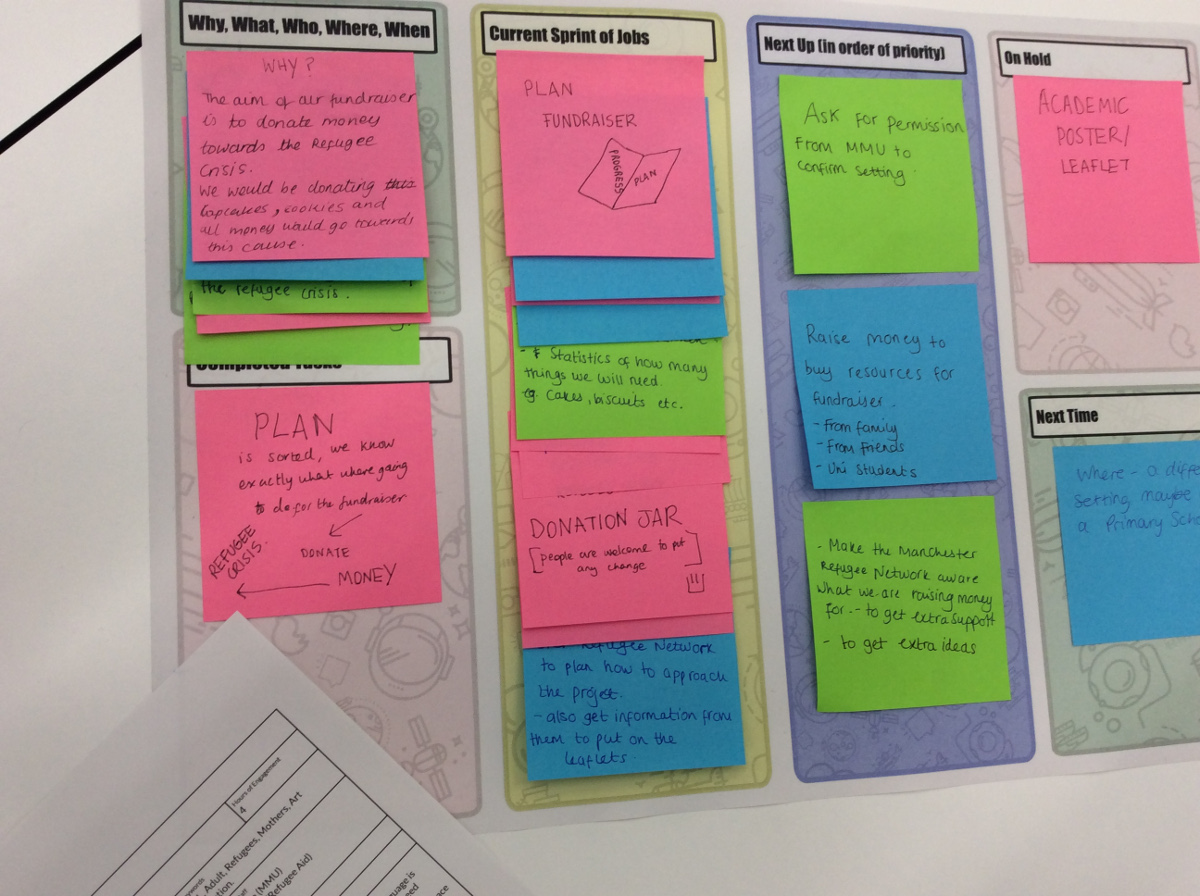 Why, What, Who, Where, When
WHY?
The aim of our fundraiser
is to donate money
towards the Refugee
crisis.
We would be donating this
Cupcakes, cookies and
all money would go towards
this cause.
the refugee crisis.
Completed Tasks
PLAN
is sorted, we know
exactly what where going
to do for the fundraiser
DONATE
MONEY
REFUGEE
CRISIS.
Current Sprint of Jobs
PLAN
FUNDRAISER
PROGRESS
PLAN
- * Statistics of how many
things we will need.
eg. Cakes, biscuits etc.
DONATION JAR
[people are welcome to put
any change]
Refugee Network
to plan how to approach
the project.
- also get information from
them to put on the
leaflets.
Next Up (in order of priority)
Ask for permission
from MMU to
confirm setting.
Raise money to
buy resources for
fundraiser.
- From family
- From friends
- Uni students
- Make the Manchester
Refugee Network aware
what we are raising money
for. - to get extra support
- to get extra ideas
On Hold
ACADEMIC
POSTER/
LEAFLET
Next Time
Where - a diffe
setting maybe
a Primary Scho
Hours of Engagement
4
Adult, Refugees, Mothers, Art
(MMU)
Refugee Aid)